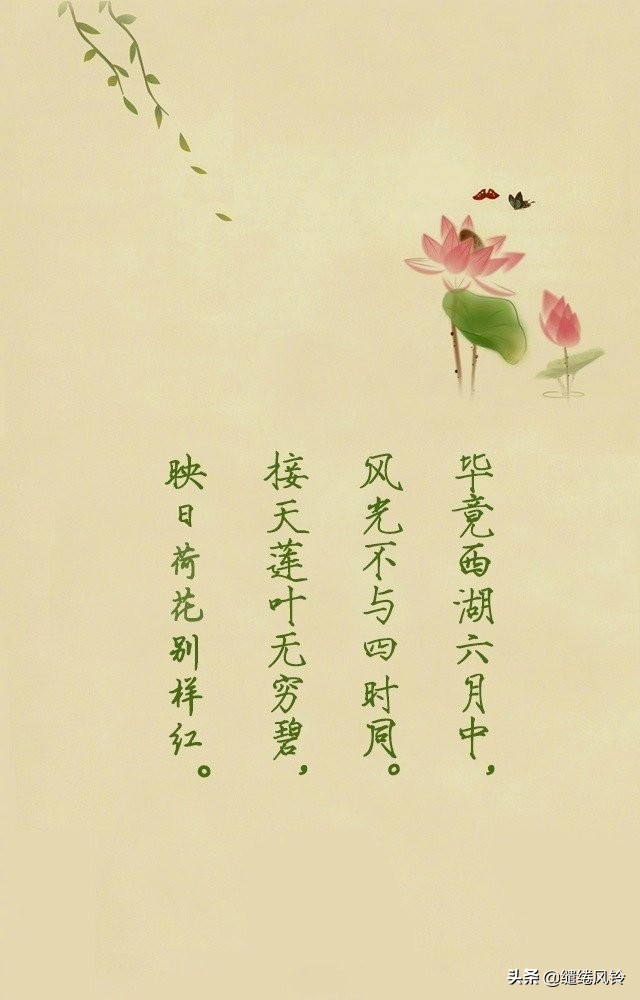 毕竟西湖六月中，
风光不与四时同。
接天莲叶无穷碧，
映日荷花别样红。
头条 @缱绻风铃